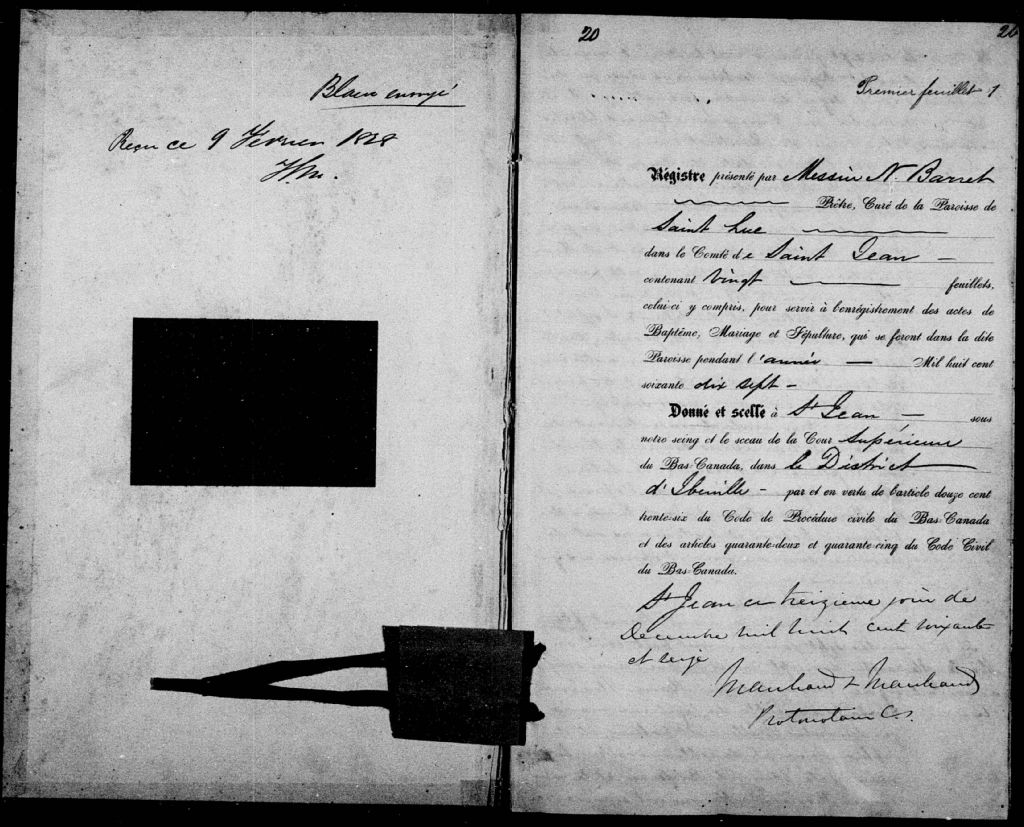 Blanc envoyé
Reçu ce 9 Fevrier 1878
20
Premier feuillet 1
Régistre présenté par Messire N. Barret
Prêtre, Curé de la Paroisse de
Saint Luc
dans le Comté de Saint Jean —
contenant Vingt feuillets,
celui-ci y compris, pour servir à l'enrégistrement des actes de
Baptême, Mariage et Sépulture, qui se feront dans la dite
Paroisse pendant l'année — Mil huit cent
soixante dix sept —
Donné et scellé à St Jean — sous
notre seing et le sceau de la Cour Supérieure
du Bas-Canada, dans le District
d'Iberville — par et en vertu de l'article douze cent
trente-six du Code de Procédure civile du Bas-Canada
et des articles quarante-deux et quarante-cinq du Code Civil
du Bas-Canada.
St Jean ce treizieme jour de
Decembre mil huit cent soixante
et seize
Marchand & Marchand
Protonotaire C.S.